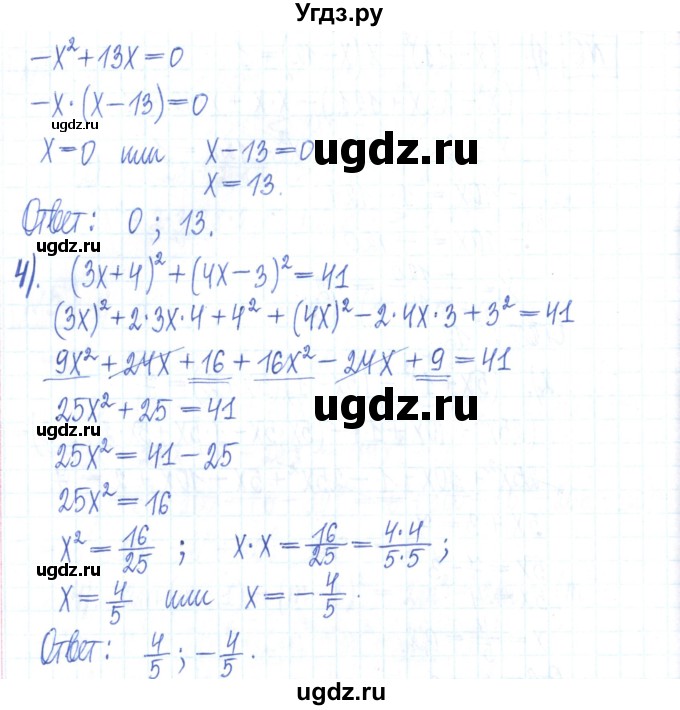 Угдз.ру
-x² + 13x = 0
-x · (x - 13) = 0
ugdz.ru
x = 0 или x - 13 = 0
ugdz.ru
x = 13.
Ответ: 0 ; 13.
ugdz.ru
4). (3x + 4)² + (4x - 3)² = 41
(3x)² + 2·3x·4 + 4² + (4x)² - 2·4x·3 + 3² = 41
9x² + 24x + 16 + 16x² - 24x + 9 = 41
25x² + 25 = 41
ugdz.ru
ugdz.ru
25x² = 41 - 25
25x² = 16
x² = 16/25 ; x · x = 16/25 = 4·4/5·5 ;
ugdz.ru
x = 4/5 или x = -4/5.
ugdz.ru
Ответ: 4/5 ; -4/5.
ugdz.ru